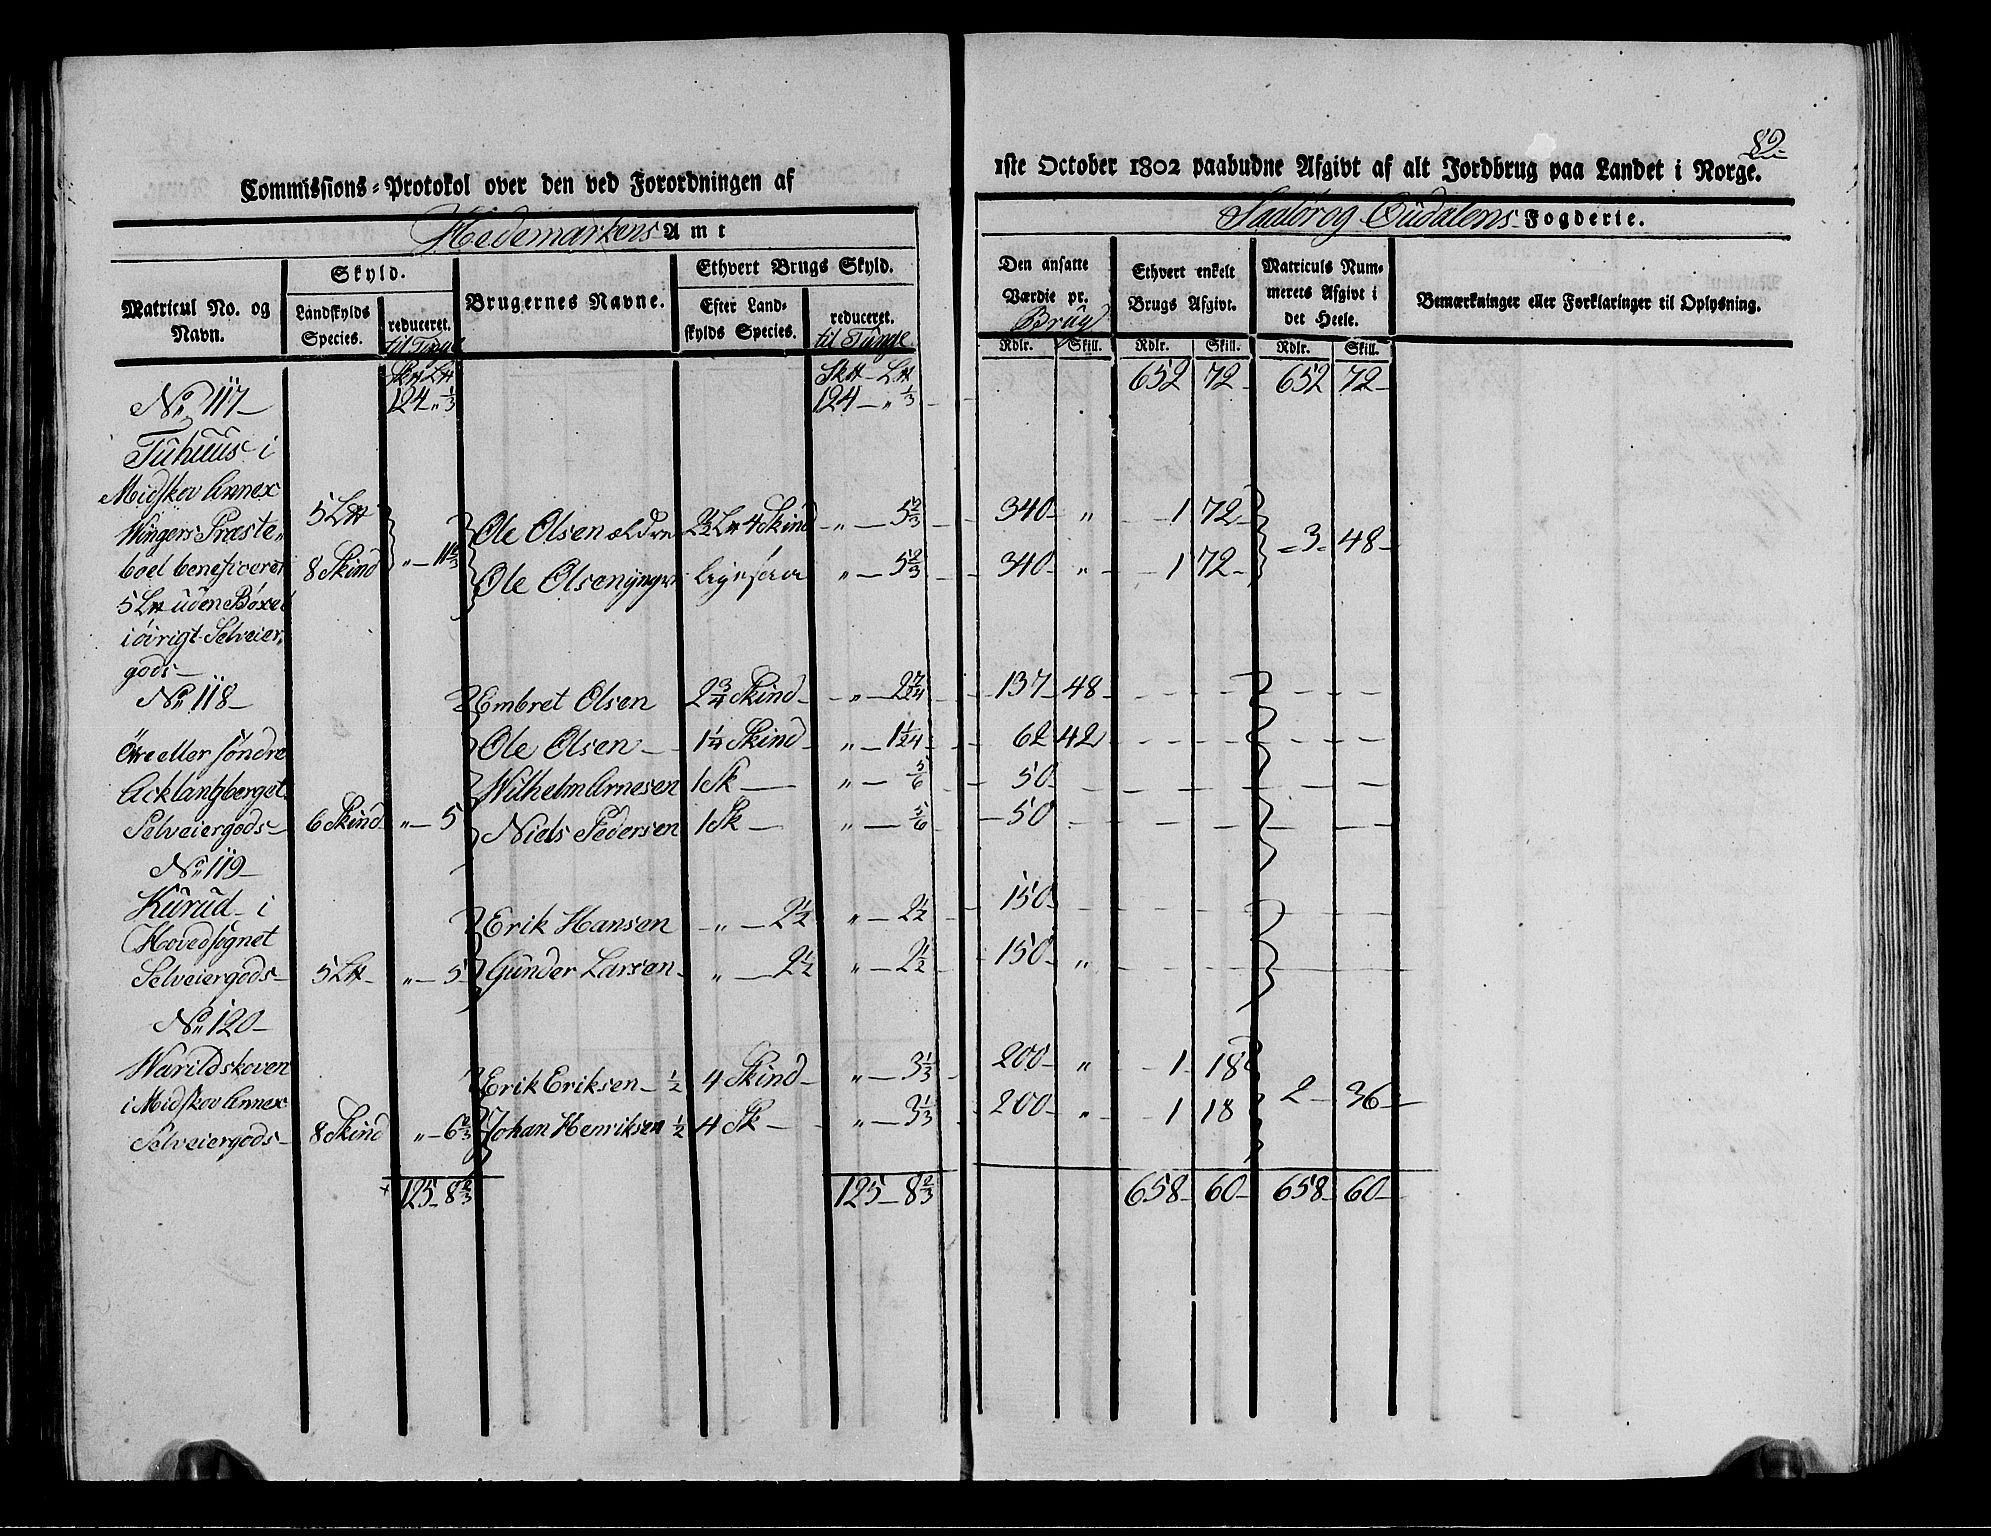 82
Commissions-Protokol over den ved Forordningen af
1ste October 1802 paabudne Afgivt af alt Jordbrug paa Landet i Norge.
Hedemarkens Amt
Saalør og Oudalens Fogderie.
Matricul No. og Navn.
Skyld.
Landskylds Species.
reduceret. til Tunge
Brugernes Navne.
Ethvert Brugs Skyld.
Efter Landskylds Species.
reduceret. til Tunge
Den ansatte Værdie pr. Brug
Rdlr. Skill.
Ethvert enkelt Brugs Afgivt.
Rdlr. Skill.
Matriculs Nummerets Afgivt i det Heele.
Rdlr. Skill.
Bemærkninger eller Forklaringer til Oplysning.
No. 117 124 „ 1/3 124 — „ 1/3 652 72 652 72
Tuhuus i
Midskov Annex
Wingers Præste-
boel beneficeret
5 L℔ uden Bøxel
i øvrigt Selveier-
gods
5 L℔ 8 Skind „ — 11 1/3
Ole Olsen ældre 2 1/2 L℔ 4 Skind „ — 5 2/3 340 „ 1 72
Ole Olsen yngre ligesaa „ — 5 2/3 340 „ 1 72
3 48
No. 118
Øvre eller søndre
Acklangberget
Selveiergods 6 Skind „ — 5
Embret Olsen 2 3/4 Skind „ — 2 7/24 137 48
Ole Olsen 1 1/4 Skind „ — 1 1/24 62 42
Wilhelm Arnesen 1 Sk „ — 5/6 50
Niels Pedersen 1 Sk „ — 5/6 50
No. 119
Kurud i
Hovedsognet
Selveiergods 5 L℔ „ — 5
Erik Hansen „ — 2 1/2 „ — 2 1/2 150
Gunder Larsen „ — 2 1/2 „ — 2 1/2 150 „
No. 120
Warildskoven
i Midskov Annex
Selveiergods 8 Skind „ — 6 2/3
Erik Eriksen 1/2 4 Skind „ — 3 1/3 200 „ 1 18
Johan Henriksen 1/2 4 Sk „ — 3 1/3 200 „ 1 18
2 36
125 8 2/3 125 — 8 2/3 658 60 658 60